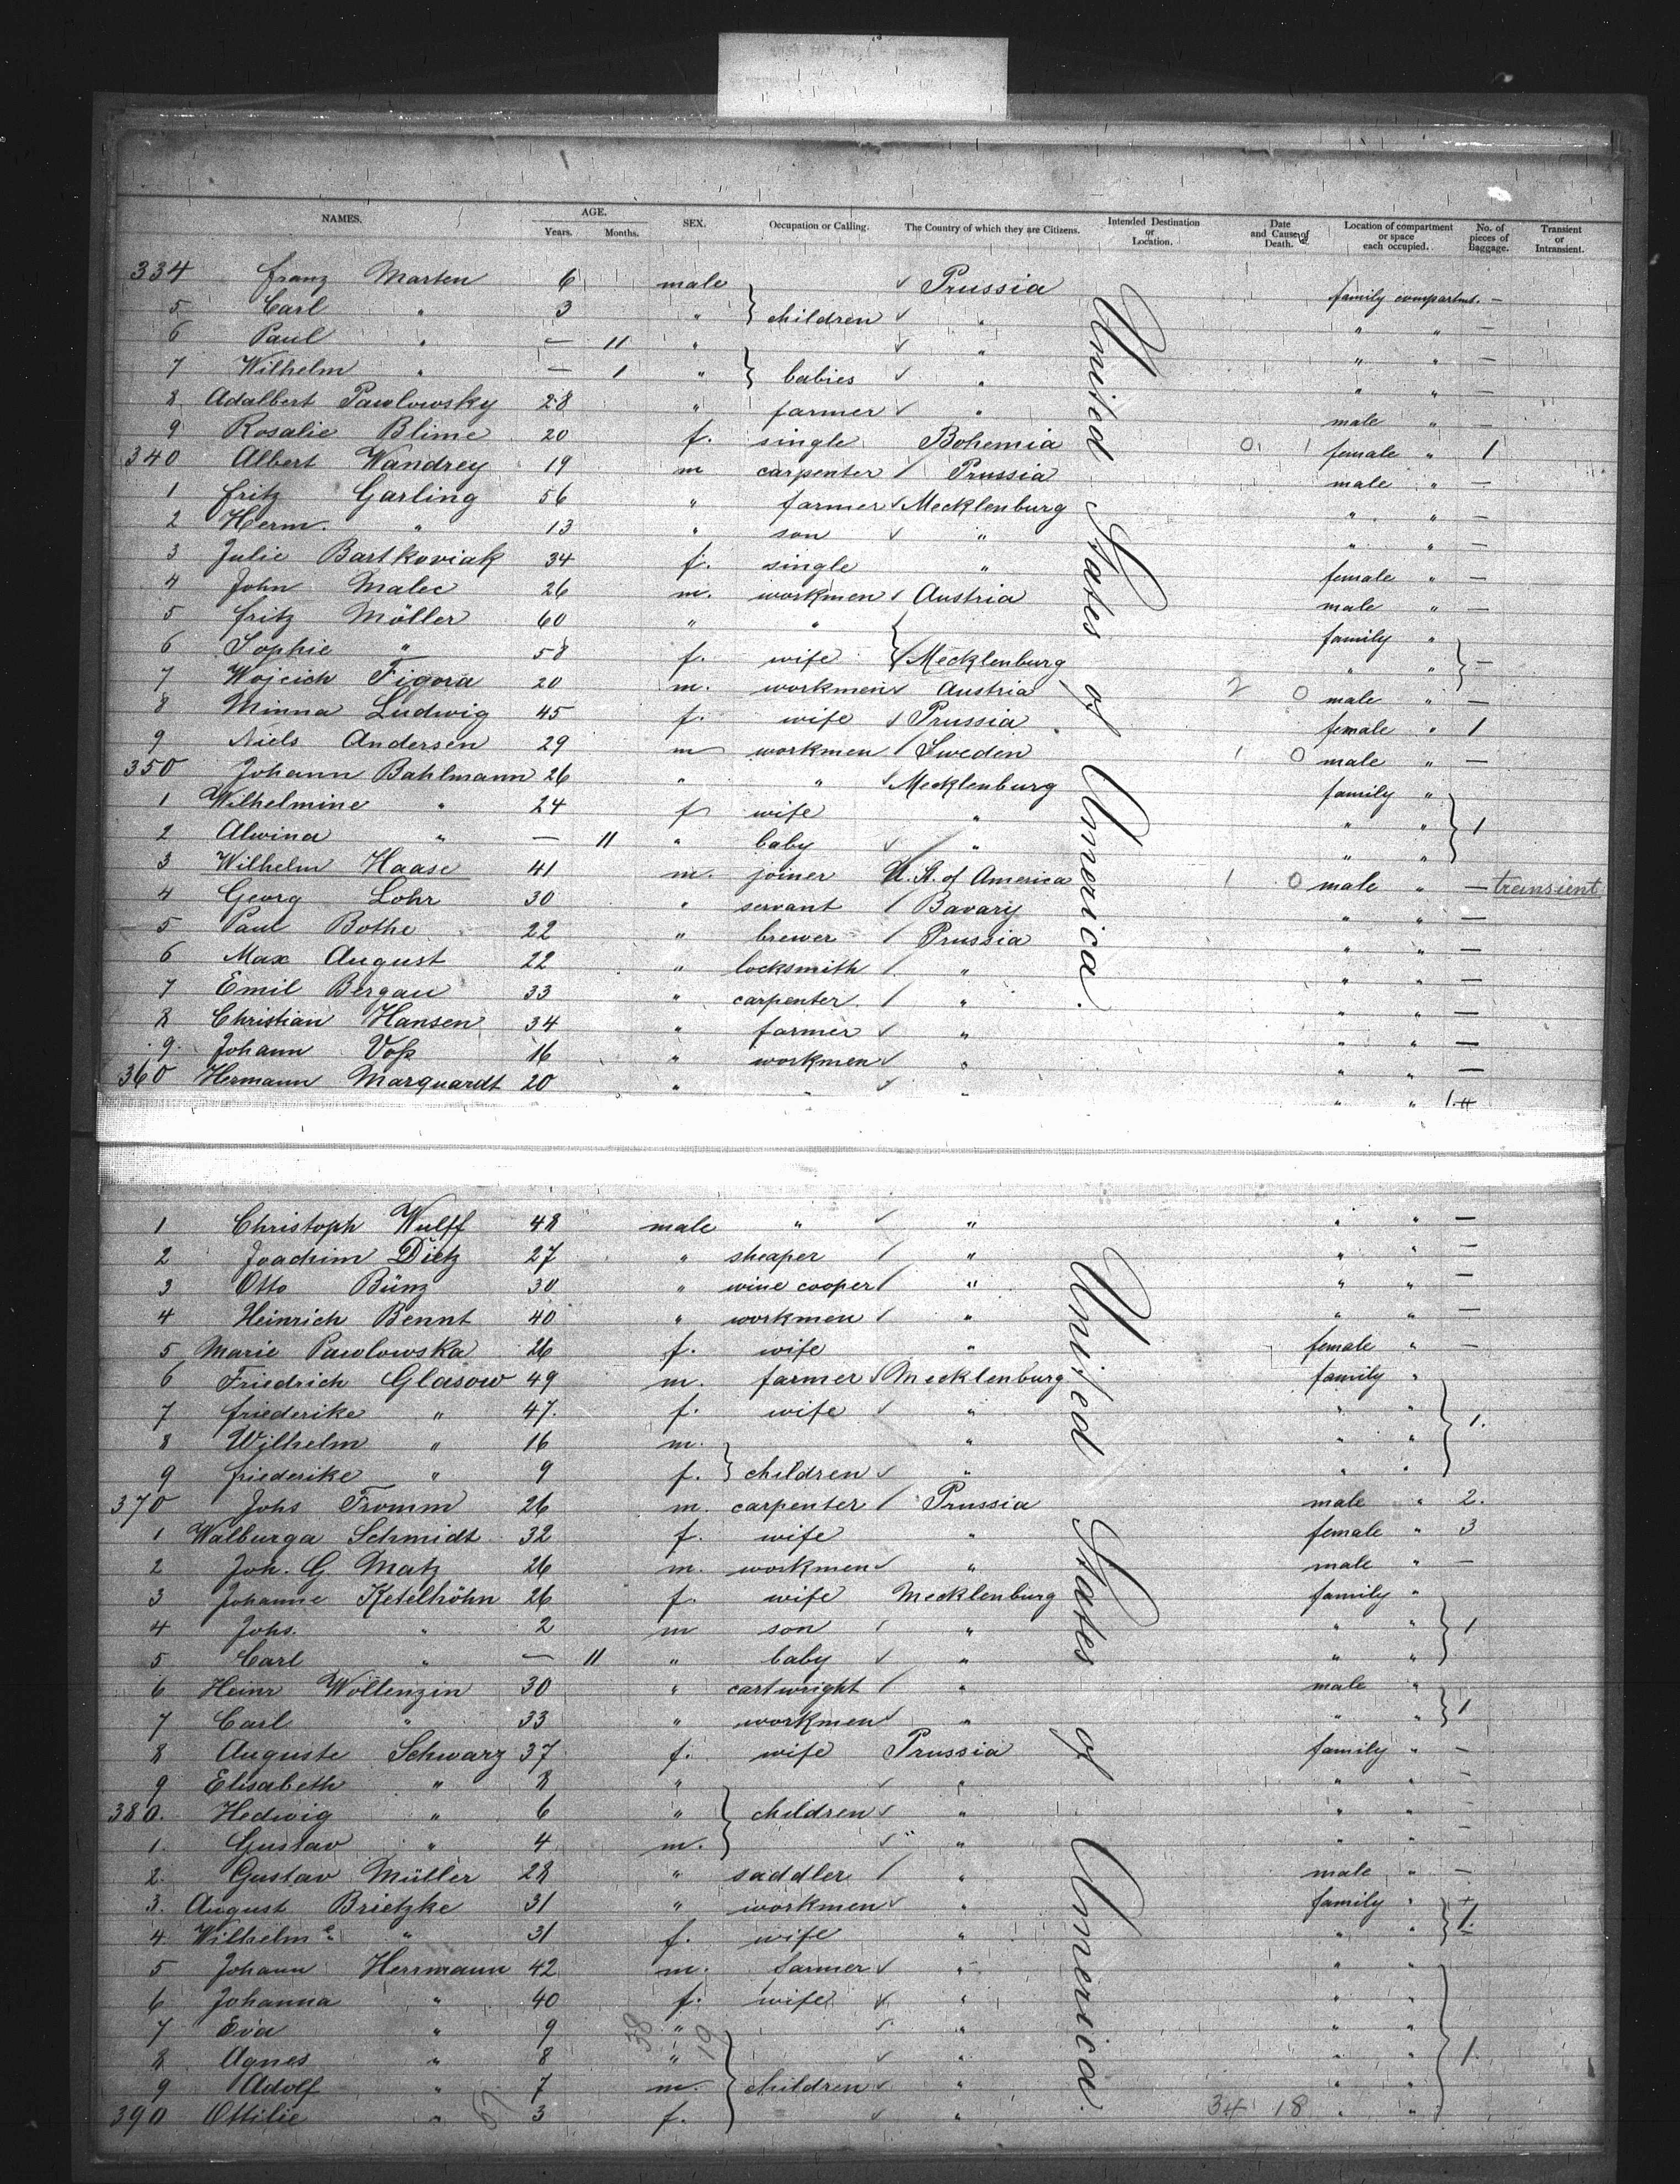 NAMES. AGE. SEX. Occupation or Calling. The Country of which they are Citizens. Intended Destination or Location. Date and Cause of Death. Location of compartment or space each occupied. No. of pieces of Baggage. Transient or Intransient.
Years. Months.
334 Franz Marten 6 male Prussia family compartmt. —
5 Carl " 3 " } children " " " —
6 Paul " — 11 " " " " —
7 Wilhelm " — 1 " } babies " " " —
8 Adalbert Pawlowsky 28 " farmer " male " —
9 Rosalie Blime 20 f. single Bohemia 0 1 female " 1
340 Albert Wandrey 19 m carpenter Prussia male " —
1 Fritz Garling 56 " farmer Mecklenburg " " —
2 Herm. " 13 " son " " " —
3 Julie Bartkoviak 34 f. single " female " —
4 John Malec 26 m. workmen Austria male " —
5 Fritz Möller 60 " " { family "
6 Sophie " 58 f. wife Mecklenburg " " } —
7 Wojcich Figora 20 m. workmen Austria 2 0 male " —
8 Minna Ludwig 45 f. wife Prussia female " 1
9 Niels Andersen 29 m workmen Sweden 1 0 male " —
350 Johann Bahlmann 26 " " Mecklenburg family "
1 Wilhelmine " 24 f wife " " " } 1
2 Alwina " — 11 " baby " " "
3 Wilhelm Haase 41 m. joiner U. St. of America 1 0 male " — transient
4 Georg Lohr 30 " servant Bavary " " —
5 Paul Bothe 22 " brewer Prussia " " —
6 Max August 22 " locksmith " " " —
7 Emil Bergau 33 " carpenter " " " —
8 Christian Hansen 34 " farmer " " " —
9 Johann Voß 16 " workmen " " " —
360 Hermann Marquardt 20 " " " " " 1.
United States of America.
1 Christoph Wulff 48 male " " " " —
2 Joachim Dietz 27 " sheaper " " " —
3 Otto Bünz 30 " wine cooper " " " —
4 Heinrich Bennt 40 " workmen " " " —
5 Marie Pawlowska 26 f. wife " female " —
6 Friedrich Glasow 49 m. farmer Mecklenburg family "
7 Friederike " 47. f. wife " " " } 1.
8 Wilhelm " 16 m. " " "
9 Friederike " 9 f. } children " " "
370 Johs Fromm 26 m. carpenter Prussia male " 2.
1 Walburga Schmidt 32 f. wife " female " 3
2 Joh. G Matz 26 m. workmen " male " —
3 Johanne Ketelhöhn 26 f. wife Mecklenburg family "
4 Johs. " 2 m son " " " } 1
5 Carl " — 11 " baby " " "
6 Heinr Wöllenzin 30 " cartwright " male "
7 Carl " 33 " workmen " " " } 1
8 Auguste Schwarz 37 f. wife Prussia family " —
9 Elisabeth " 8 " " " " —
380. Hedwig " 6 " } children " " " —
1. Gustav " 4 m. " " " —
2. Gustav Müller 28 " saddler " male " —
3. August Brietzke 31 " workmen " family "
4. Wilhelme " 31 f. wife " " " } 1.
5 Johann Herrmann 42 m. farmer " " "
6 Johanna " 40 f. wife " " "
7 Eva " 9 " " " "
8 Agnes " 8 " " " " } 1.
9 Adolf " 7 m. } children " " "
390 Ottilie " 3 f. " 34 18 " "
United States of America.
38 19